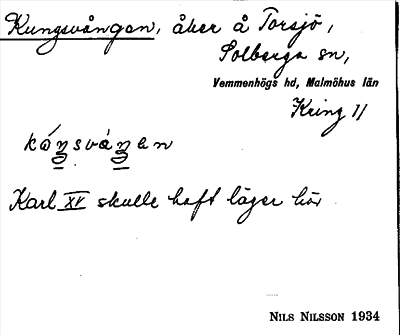 Kungsvången, åker å Torsjö,
Solberga sn,
Vemmenhögs hd, Malmöhus län
Kring 11
kóŋsváŋan
Karl XV skulle haft läger här
NILS NILSSON 1934